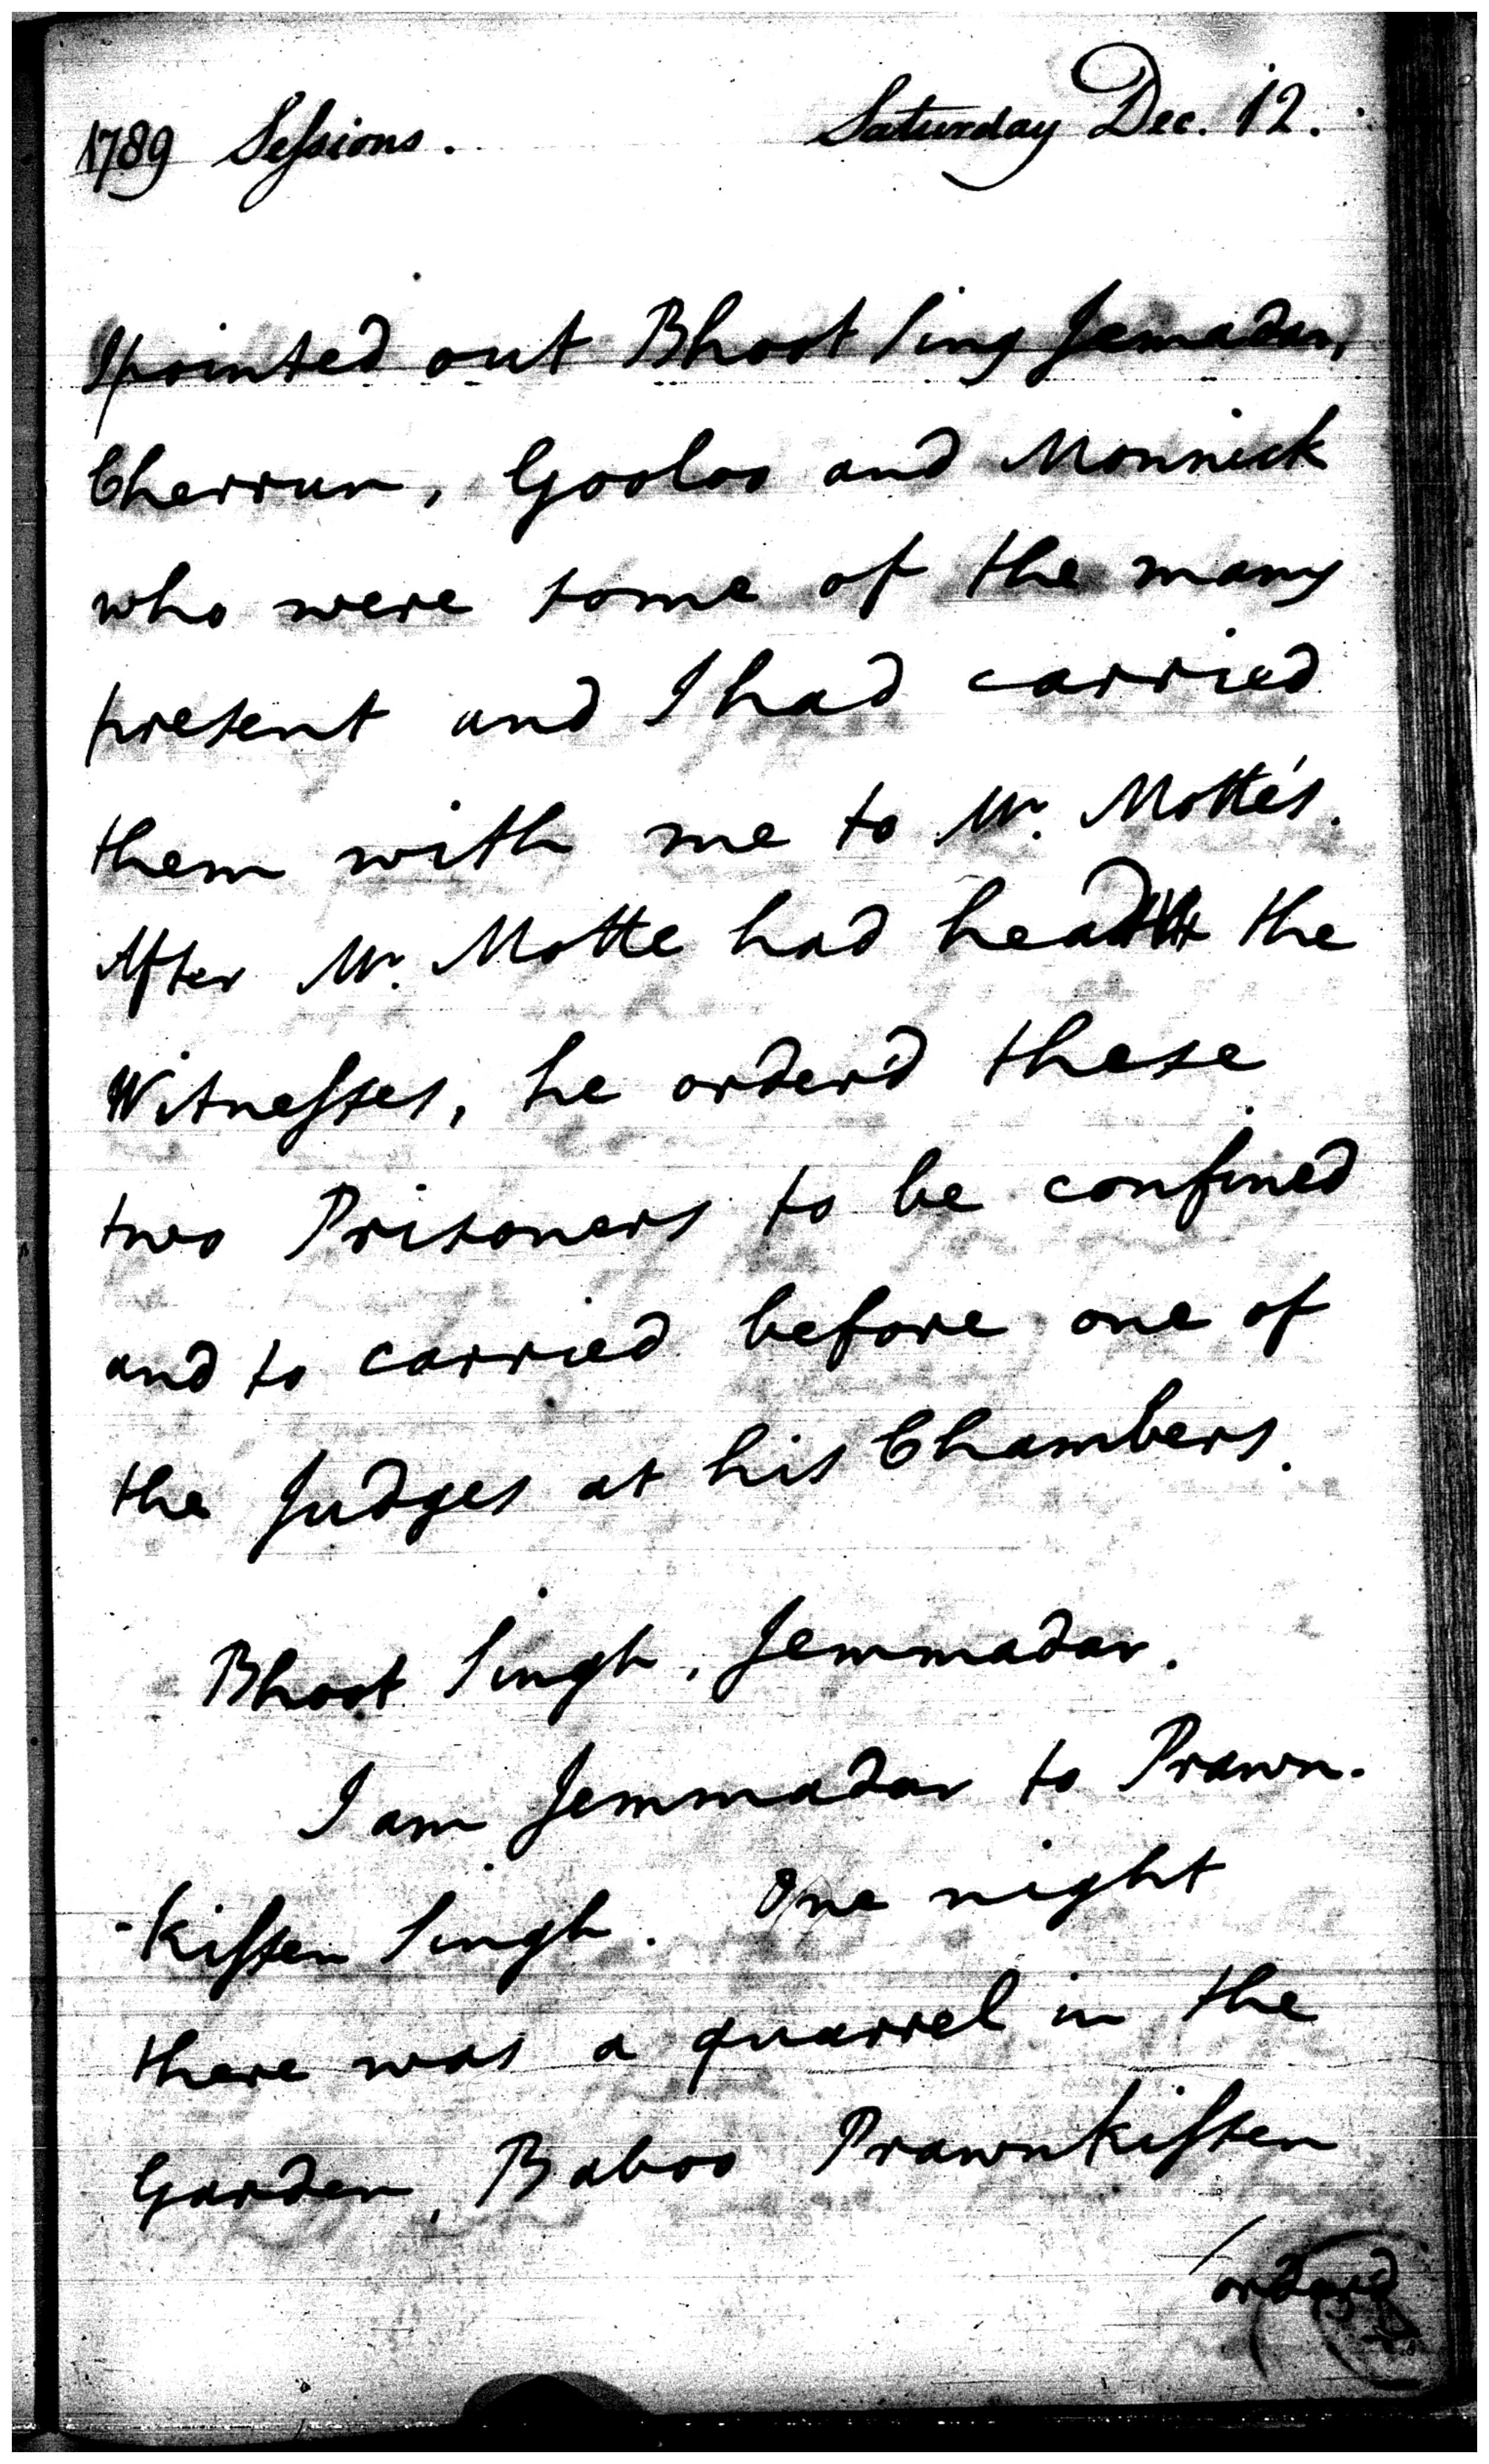 1789 Sessions. Saturday Dec. 12.
I pointed out Bhoot Sing Jemadar,
Cherrun, Gooloo and Monnick
who were some of the many
present and I had carried
them with me to Mr. Motte's.
After Mr. Motte had heard the
Witnesses, he orderd these
two Prisoners to be confined
and to carried before one of
the Judges at his Chambers.
Bhoot Singh, Jemmadar.
I am Jemmadar to Prawn-
-kissen Singh. One night
there was a quarrel in the
Garden, Baboo Prawnkissen
/orderd